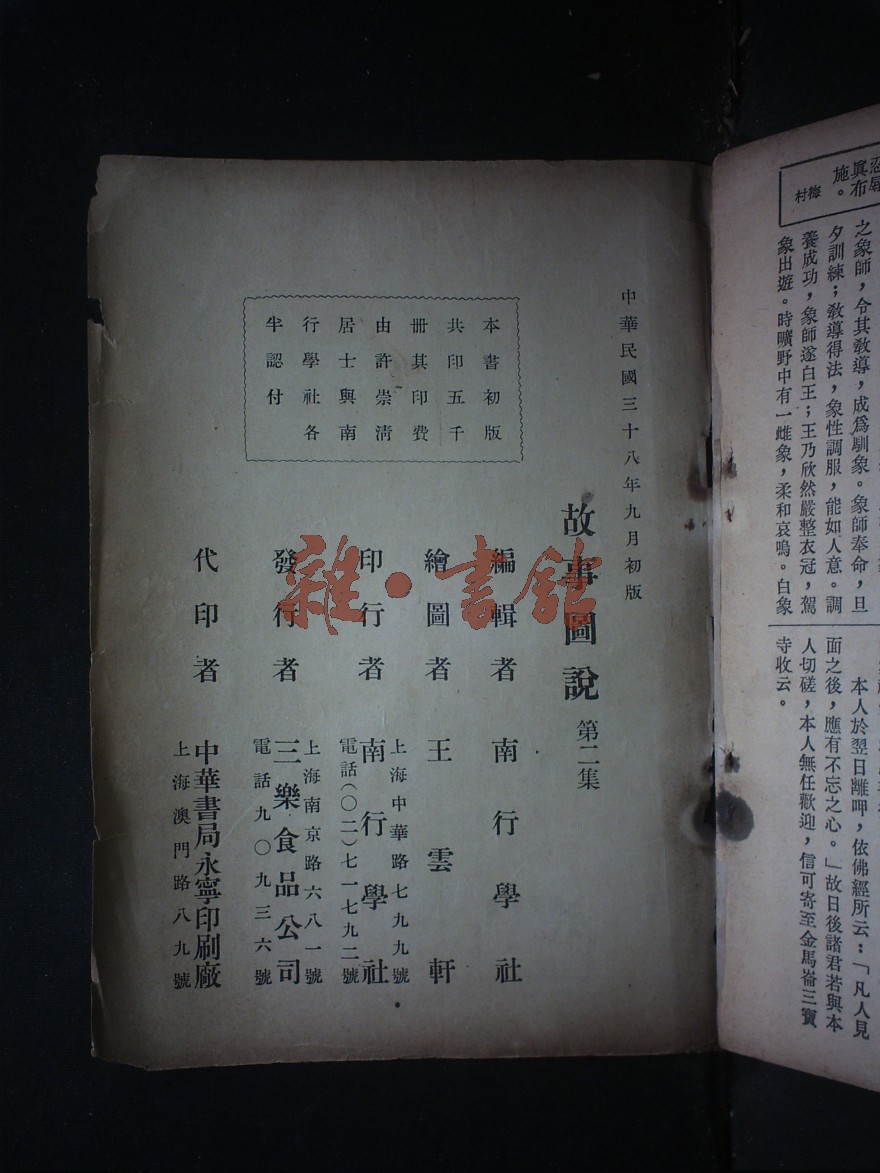 忍辱
真布
施。
梅村
之象師，令其教導，成爲馴象。象師奉命，旦
夕訓練；教導得法，象性調服，能如人意。調
養成功，象師遂白王；王乃欣然嚴整衣冠，駕
象出遊。時曠野中有一雌象，柔和哀鳴。白象
本人於翌日離呷，依佛經所云：「凡人見
面之後，應有不忘之心。」故日後諸君若與本
人切磋，本人無任歡迎，信可寄至金馬崙三寶
寺收云。
中華民國三十八年九月初版
故事圖說 第二集
編輯者 南行學社
繪圖者 王雲軒
上海中華路七九九號
印行者 南行學社
電話(〇二)七一七九二號
上海南京路六八一號
發行者 三樂食品公司
電話九〇九三六號
代印者 中華書局永寧印刷廠
上海澳門路八九號
本書初版
共印五千
冊其印費
由許崇清
居士與南
行學社各
半認付
雜·書館